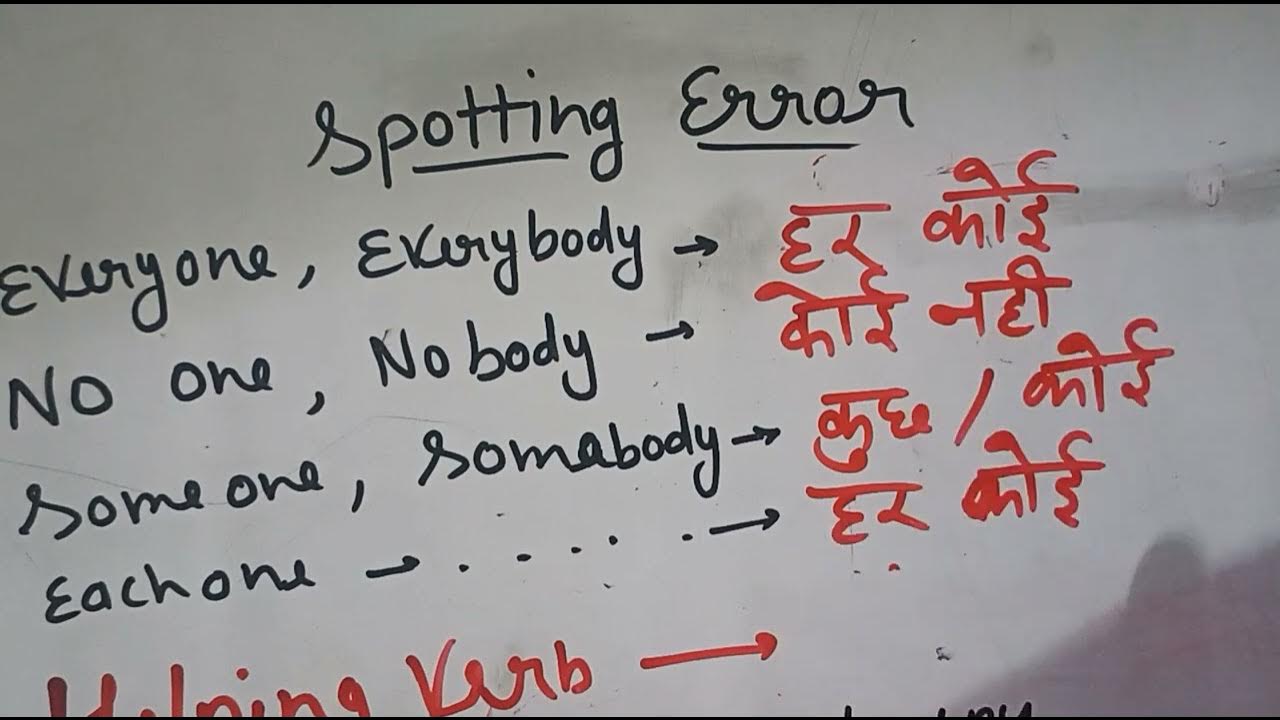 Spotting Error
Everyone, Everybody → हर कोई
No one, Nobody → कोई नही
Someone, Somabody → कुछ / कोई
Each one → . . . . . → हर कोई
Helping Verb →